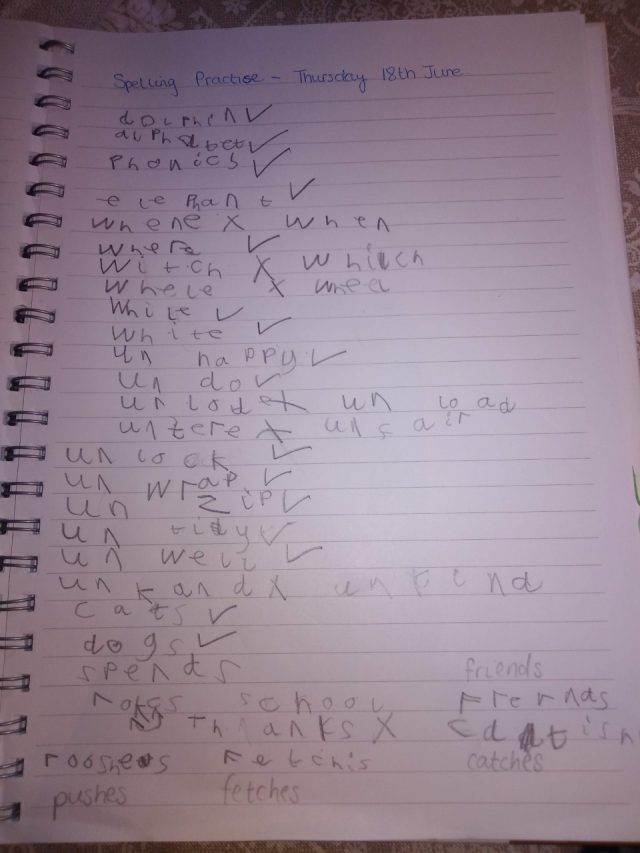 Spelling Practise - Thursday 18th June
dolphin ✓
alphabet ✓
Phonics ✓
elephant ✓
whene X when
where ✓
Witch X which
Whele X wheel
While ✓
white ✓
un happy ✓
un do ✓
un lode X un load
unfere X unfair
un lock ✓
un wrap ✓
un zip ✓
un tidy ✓
un well ✓
un kand X unkind
cats ✓
dogs ✓
spends friends
school Frernds
thanks X catish
rooshers Fetchis catches
pushes fetches